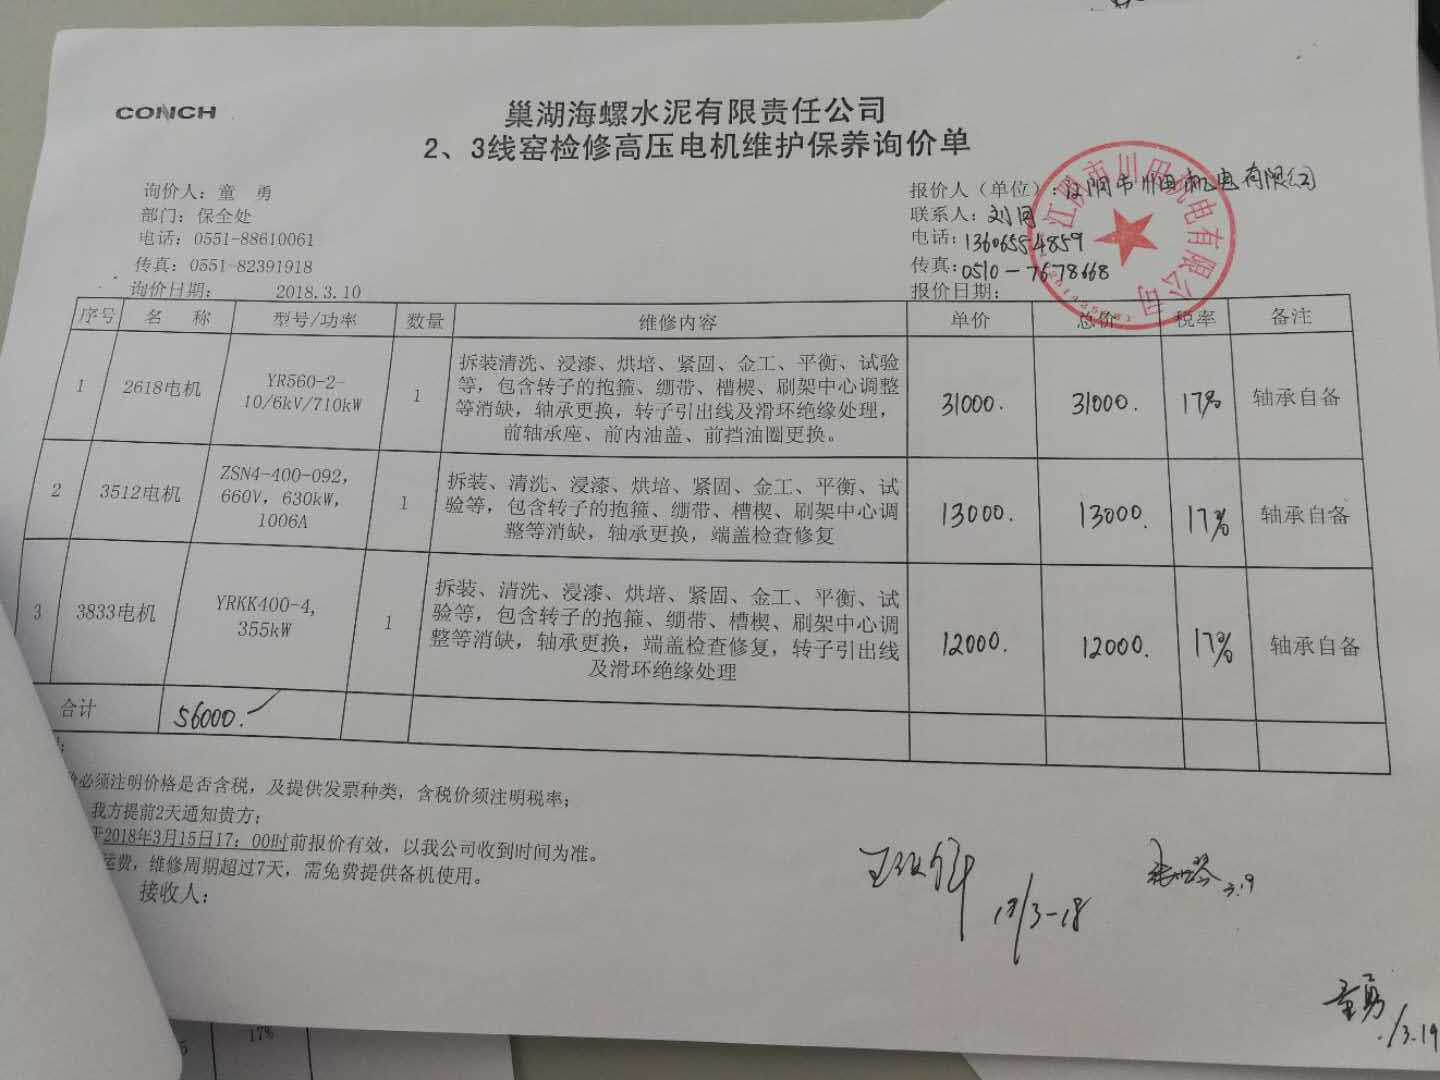 CONCH
巢湖海螺水泥有限责任公司
2、3线窑检修高压电机维护保养询价单
询价人：童 勇
部门：保全处
电话：0551-88610061
传真：0551-82391918
询价日期： 2018.3.10
报价人（单位）：江阴市川田机电有限公司
联系人：刘同
电话：13606554859
传真：0510-7678668
报价日期：
江阴市川田机电有限公司
序号 名 称 型号/功率 数量 维修内容 单价 总价 税率 备注
1 2618电机 YR560-2-10/6kV/710kW 1
拆装清洗、浸漆、烘培、紧固、金工、平衡、试验
等，包含转子的抱箍、绷带、槽楔、刷架中心调整
等消缺，轴承更换，转子引出线及滑环绝缘处理，
前轴承座、前内油盖、前挡油圈更换。
31000. 31000. 17% 轴承自备
2 3512电机 ZSN4-400-092，660V，630kW，1006A 1
拆装、清洗、浸漆、烘培、紧固、金工、平衡、试
验等，包含转子的抱箍、绷带、槽楔、刷架中心调
整等消缺，轴承更换，端盖检查修复
13000. 13000. 17% 轴承自备
3 3833电机 YRKK400-4，355kW 1
拆装、清洗、浸漆、烘培、紧固、金工、平衡、试
验等，包含转子的抱箍、绷带、槽楔、刷架中心调
整等消缺，轴承更换，端盖检查修复，转子引出线
及滑环绝缘处理
12000. 12000. 17% 轴承自备
合计 56000.
价必须注明价格是否含税，及提供发票种类，含税价须注明税率；
我方提前2天通知贵方；
于2018年3月15日17：00时前报价有效，以我公司收到时间为准。
运费，维修周期超过7天，需免费提供备机使用。
接收人：
18/3-18
3.19
童勇 /3.19
5 17%